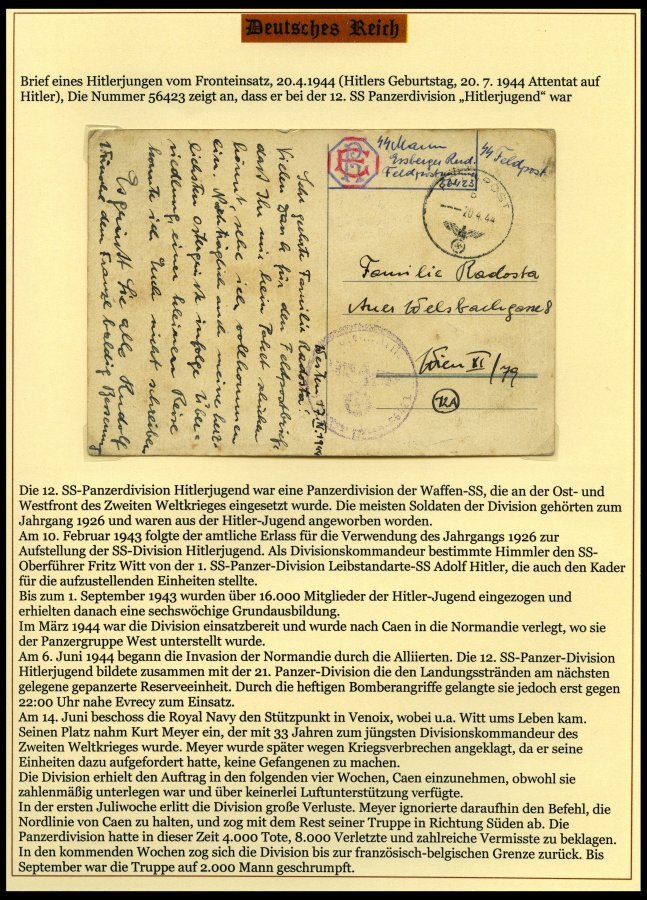 Deutsches Reich
Brief eines Hitlerjungen vom Fronteinsatz, 20.4.1944 (Hitlers Geburtstag, 20. 7. 1944 Attentat auf
Hitler), Die Nummer 56423 zeigt an, dass er bei der 12. SS Panzerdivision „Hitlerjugend“ war
Westen 17.IV.1944
Sehr geehrte Familie Radosta!
Vielen Dank für den Feldpostbrief,
dass Ihr mir kein Paket schicken
könnt, sehe ich vollkommen
ein. Nachträglich auch meine herz-
lichsten Ostergrüsse infolge Über-
siedlung, einer kleinen Reise
konnte ich Euch nicht schreiben
Es grüsst Sie alle Rudolf
Wünsche dem Franzl baldige Besserung
SS Mann
Ersberger Rud.
Feldpostnummer
56423
SS Feldpost
FELDPOST
b
20.4.44
Familie Radosta
Wien XI/79
12A
Die 12. SS-Panzerdivision Hitlerjugend war eine Panzerdivision der Waffen-SS, die an der Ost- und
Westfront des Zweiten Weltkrieges eingesetzt wurde. Die meisten Soldaten der Division gehörten zum
Jahrgang 1926 und waren aus der Hitler-Jugend angeworben worden.
Am 10. Februar 1943 folgte der amtliche Erlass für die Verwendung des Jahrgangs 1926 zur
Aufstellung der SS-Division Hitlerjugend. Als Divisionskommandeur bestimmte Himmler den SS-
Oberführer Fritz Witt von der 1. SS-Panzer-Division Leibstandarte-SS Adolf Hitler, die auch den Kader
für die aufzustellenden Einheiten stellte.
Bis zum 1. September 1943 wurden über 16.000 Mitglieder der Hitler-Jugend eingezogen und
erhielten danach eine sechswöchige Grundausbildung.
Im März 1944 war die Division einsatzbereit und wurde nach Caen in die Normandie verlegt, wo sie
der Panzergruppe West unterstellt wurde.
Am 6. Juni 1944 begann die Invasion der Normandie durch die Alliierten. Die 12. SS-Panzer-Division
Hitlerjugend bildete zusammen mit der 21. Panzer-Division die den Landungsstränden am nächsten
gelegene gepanzerte Reserveeinheit. Durch die heftigen Bomberangriffe gelangte sie jedoch erst gegen
22:00 Uhr nahe Evrecy zum Einsatz.
Am 14. Juni beschoss die Royal Navy den Stützpunkt in Venoix, wobei u.a. Witt ums Leben kam.
Seinen Platz nahm Kurt Meyer ein, der mit 33 Jahren zum jüngsten Divisionskommandeur des
Zweiten Weltkrieges wurde. Meyer wurde später wegen Kriegsverbrechen angeklagt, da er seine
Einheiten dazu aufgefordert hatte, keine Gefangenen zu machen.
Die Division erhielt den Auftrag in den folgenden vier Wochen, Caen einzunehmen, obwohl sie
zahlenmäßig unterlegen war und über keinerlei Luftunterstützung verfügte.
In der ersten Juliwoche erlitt die Division große Verluste. Meyer ignorierte daraufhin den Befehl, die
Nordlinie von Caen zu halten, und zog mit dem Rest seiner Truppe in Richtung Süden ab. Die
Panzerdivision hatte in dieser Zeit 4.000 Tote, 8.000 Verletzte und zahlreiche Vermisste zu beklagen.
In den kommenden Wochen zog sich die Division bis zur französisch-belgischen Grenze zurück. Bis
September war die Truppe auf 2.000 Mann geschrumpft.